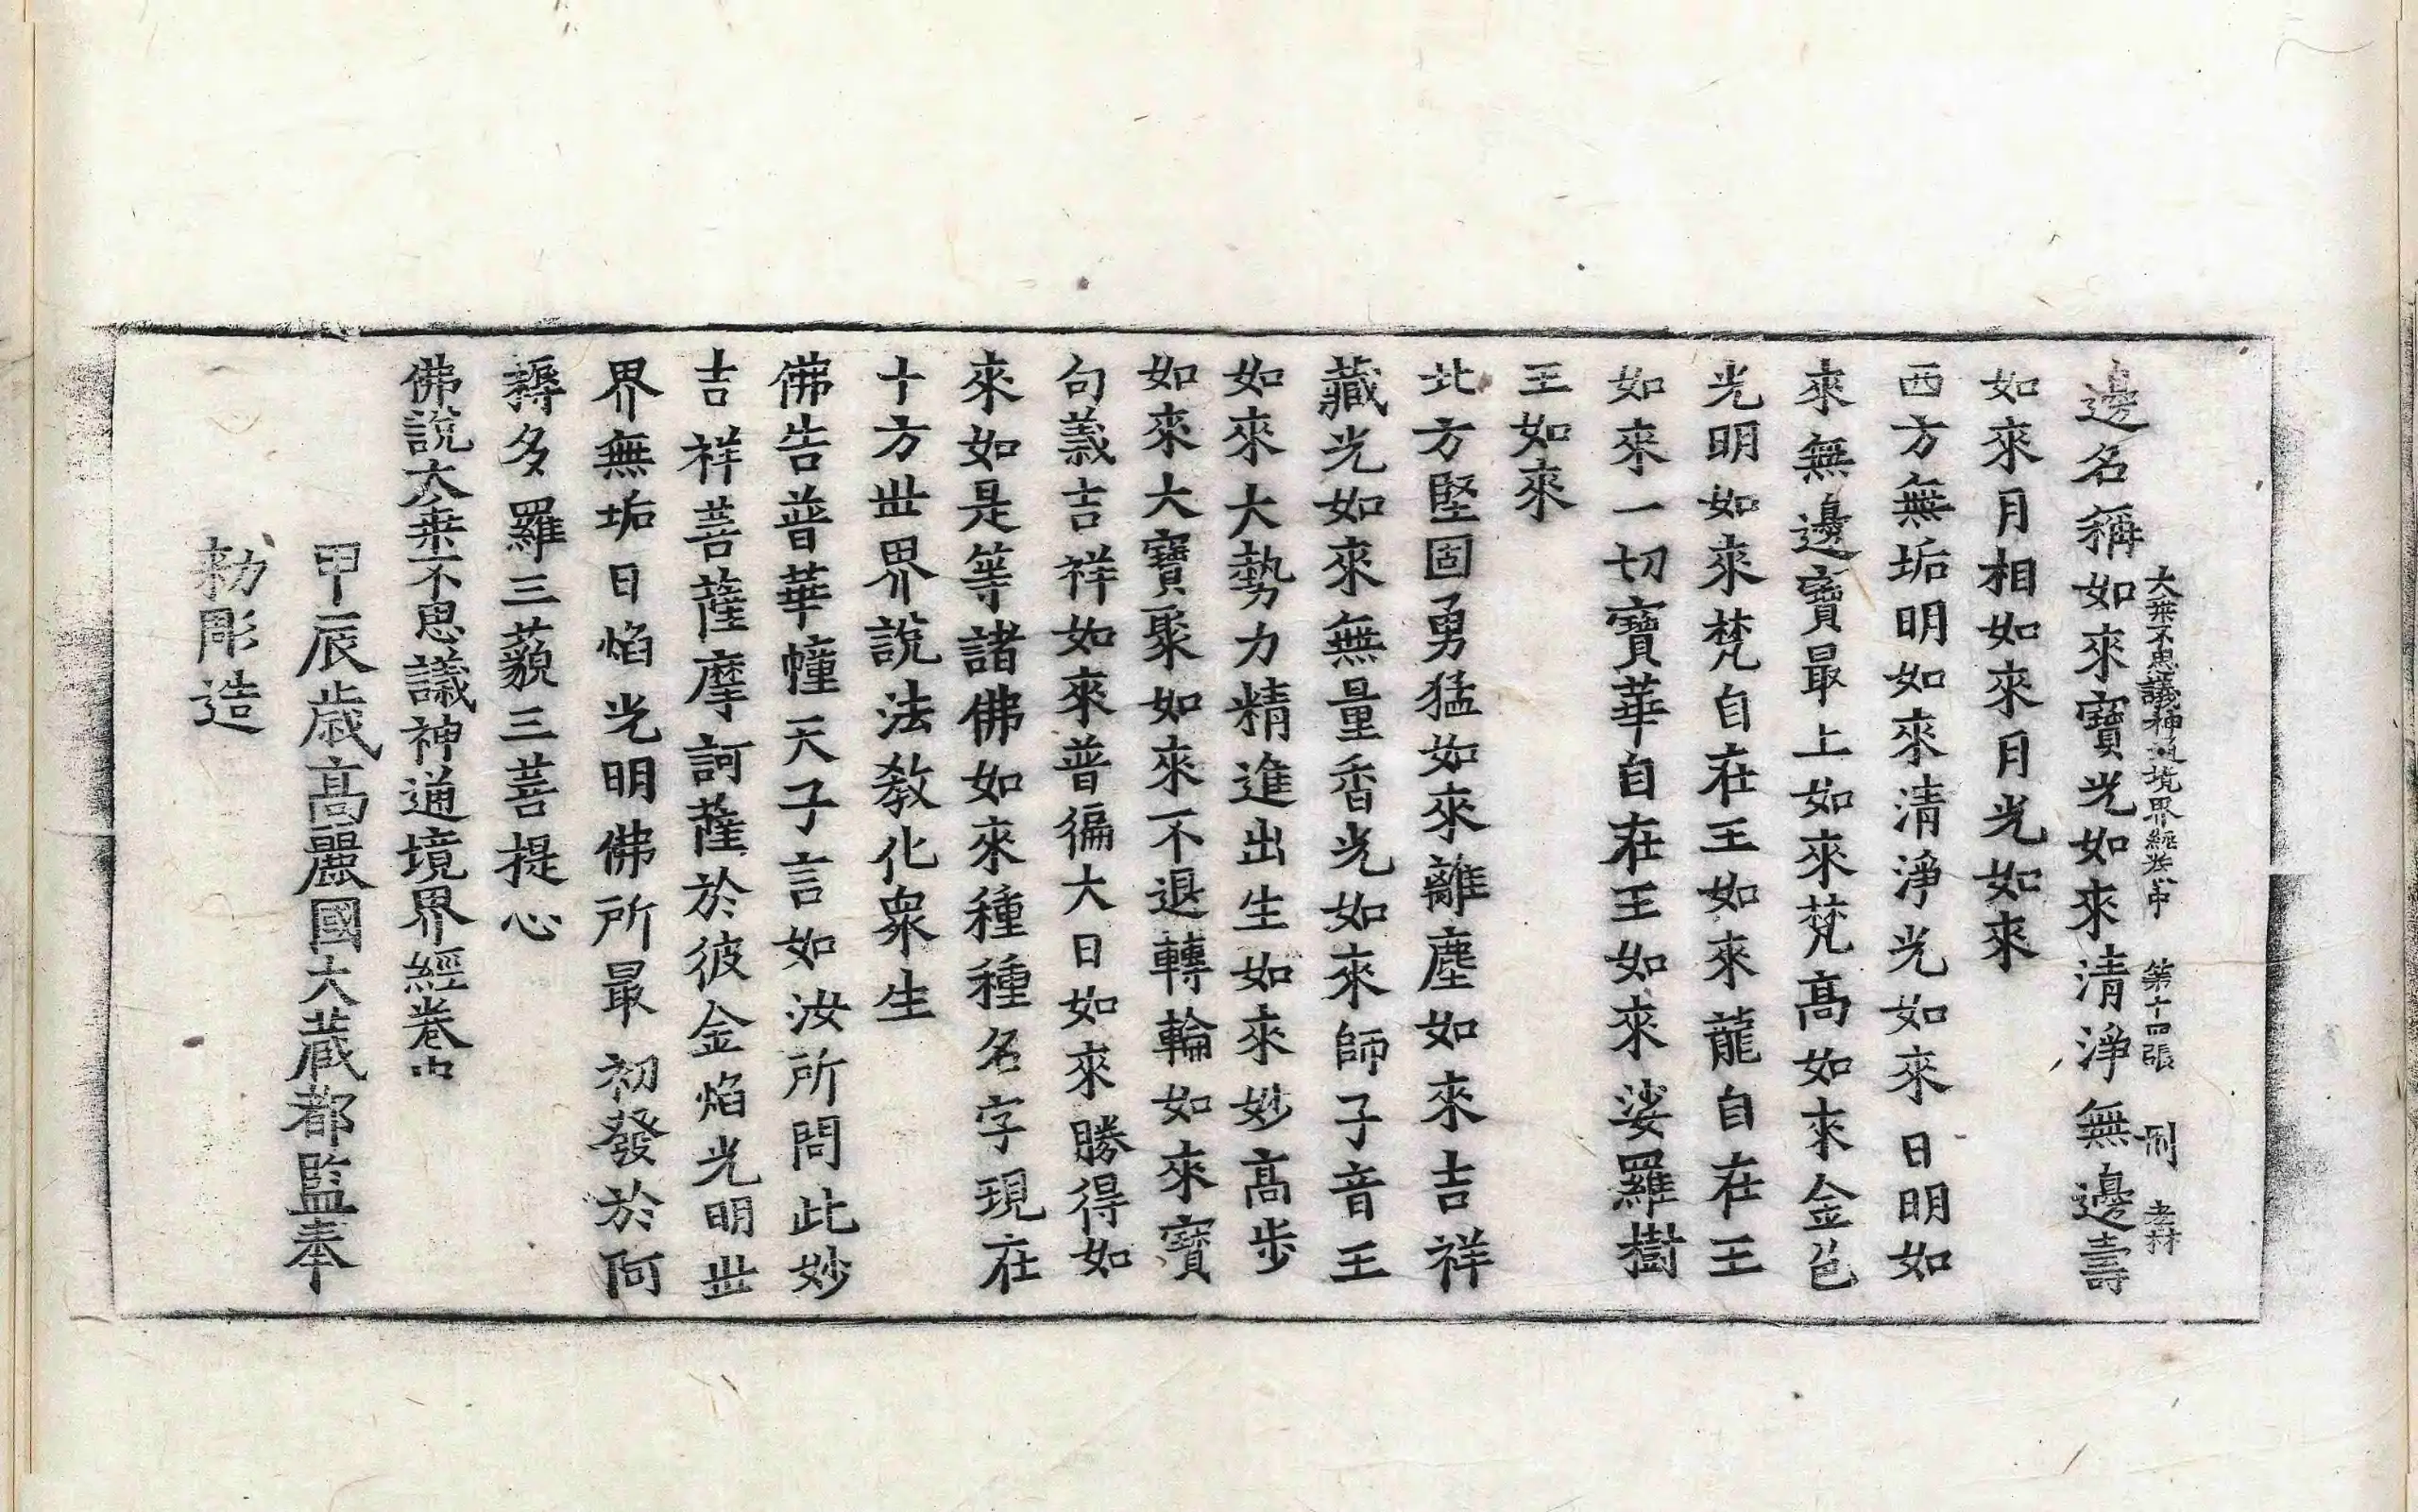 大乗不思議神通境界經卷中　第十四張　刑
邊名稱如來寶光如來清淨無邊壽
如來月相如來月光如來
西方無垢明如來清淨光如來日明如
來無邊寶最上如來梵高如來金色
光明如來梵自在王如來龍自在王
如來一切寶華自在王如來娑羅樹
王如來
北方堅固勇猛如來離塵如來吉祥
藏光如來無量香光如來師子音王
如來大勢力精進出生如來妙高步
如來大寶聚如來不退轉輪如來寶
句義吉祥如來普徧大日如來勝得如
來如是等諸佛如來種種名字現在
十方世界說法教化衆生
佛告普華幢天子言如汝所問此妙
吉祥菩薩摩訶薩於彼金焰光明世
界無垢日焰光明佛所最初發於阿
耨多羅三藐三菩提心
佛說大乗不思議神通境界經卷中
甲辰歳高麗國大藏都監奉
勑彫造